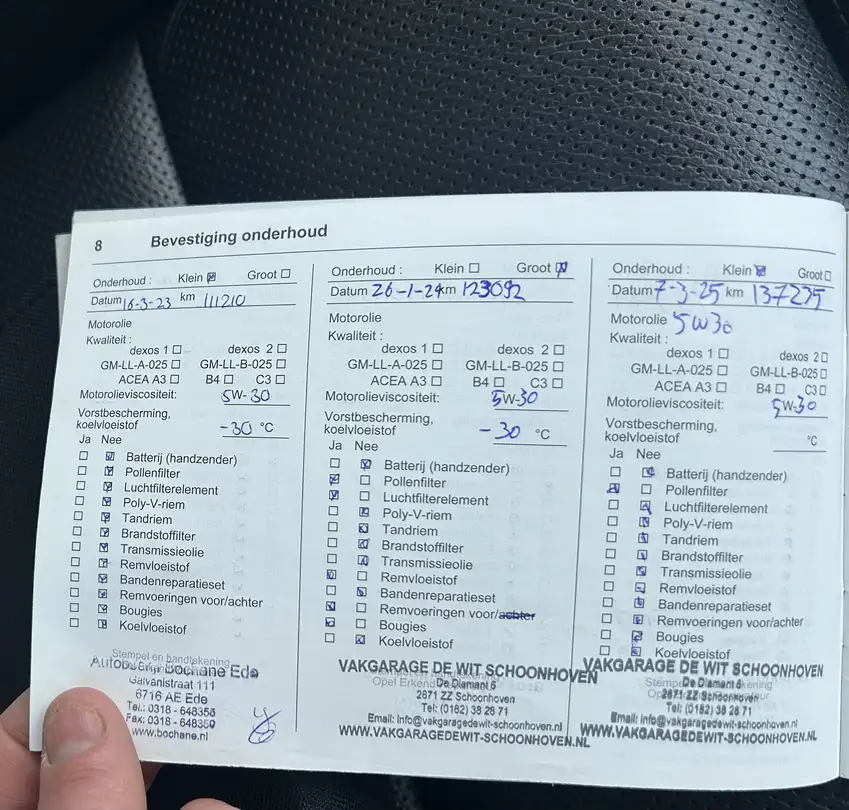 8 Bevestiging onderhoud
Onderhoud : Klein Groot
Datum 16-3-23 km 111210
Motorolie
Kwaliteit :
dexos 1 dexos 2
GM-LL-A-025 GM-LL-B-025
ACEA A3 B4 C3
Motorolieviscositeit: 5W-30
Vorstbescherming,
koelvloeistof -30 °C
Ja Nee
Batterij (handzender)
Pollenfilter
Luchtfilterelement
Poly-V-riem
Tandriem
Brandstoffilter
Transmissieolie
Remvloeistof
Bandenreparatieset
Remvoeringen voor/achter
Bougies
Koelvloeistof
Stempel en handtekening
Bochane Ede
Galvanistraat 111
6716 AE Ede
Tel.: 0318 - 648355
Fax: 0318 - 648350
www.bochane.nl
Onderhoud : Klein Groot
Datum 26-1-24 km 123092
Motorolie
Kwaliteit :
dexos 1 dexos 2
GM-LL-A-025 GM-LL-B-025
ACEA A3 B4 C3
Motorolieviscositeit: 5W-30
Vorstbescherming,
koelvloeistof -30 °C
Ja Nee
Batterij (handzender)
Pollenfilter
Luchtfilterelement
Poly-V-riem
Tandriem
Brandstoffilter
Transmissieolie
Remvloeistof
Bandenreparatieset
Remvoeringen voor/achter
Bougies
Koelvloeistof
VAKGARAGE DE WIT SCHOONHOVEN
Opel De Diamant 6
2871 ZZ Schoonhoven
Tel: (0182) 38 28 71
Email: info@vakgaragedewit-schoonhoven.nl
WWW.VAKGARAGEDEWIT-SCHOONHOVEN.NL
Onderhoud : Klein Groot
Datum 7-3-25 km 137275
Motorolie 5W30
Kwaliteit :
dexos 1 dexos 2
GM-LL-A-025 GM-LL-B-025
ACEA A3 B4 C3
Motorolieviscositeit: 5W-30
Vorstbescherming,
koelvloeistof °C
Ja Nee
Batterij (handzender)
Pollenfilter
Luchtfilterelement
Poly-V-riem
Tandriem
Brandstoffilter
Transmissieolie
Remvloeistof
Bandenreparatieset
Remvoeringen voor/achter
Bougies
Koelvloeistof
VAKGARAGE DE WIT SCHOONHOVEN
De Diamant 6
2871 ZZ Schoonhoven
Tel: (0182) 38 28 71
Email: info@vakgaragedewit-schoonhoven.nl
WWW.VAKGARAGEDEWIT-SCHOONHOVEN.NL